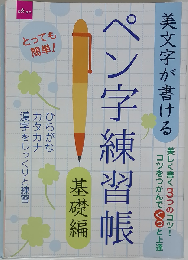 美文字が書ける
美しく書く3つのコツ!
コツをつかんでぐっと上達
ペン字練習帳
基礎編
とっても
簡単!
ひらがな
カタカナ
漢字をじっくりと練習